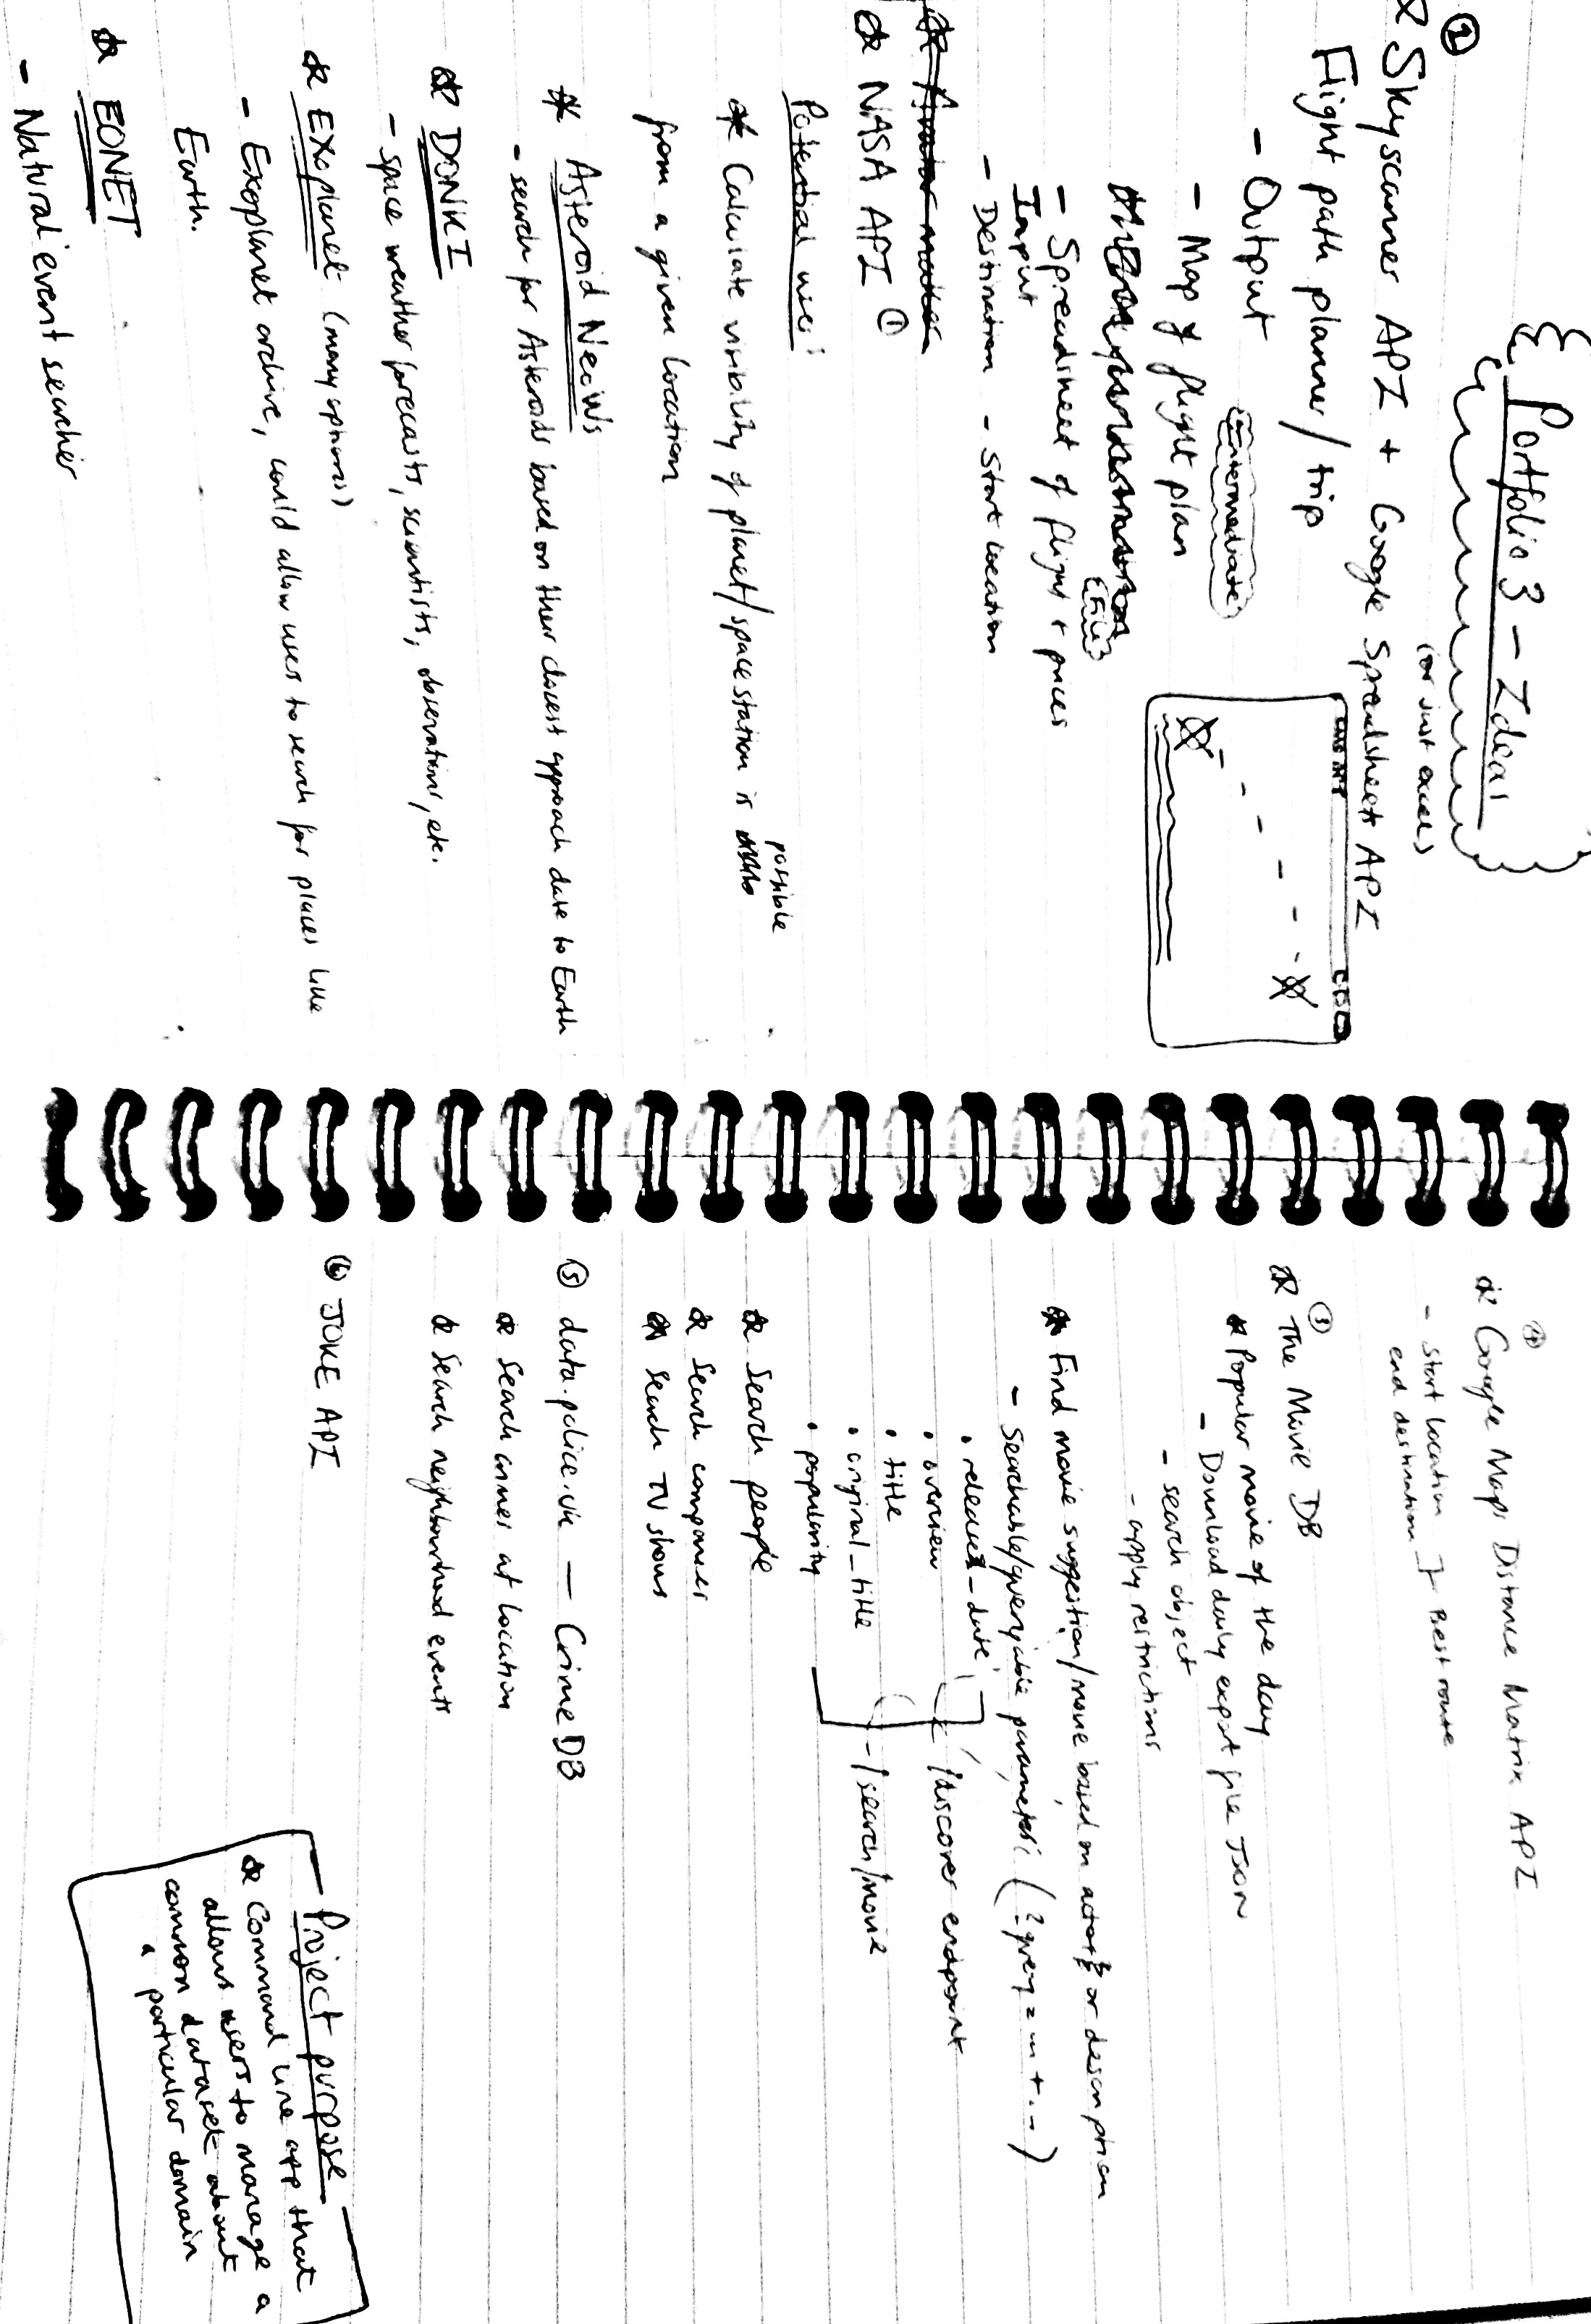 Portfolio 3 - Ideas
②
(or just excel)
Skyscanner API + Google Spreadsheets API
Flight path planner / trip
- Output
Intermediate
- Map of flight plan
File
- Spreadsheet of flight + prices
Input
- Destination - Start location
Avatar maker
NASA API ①
Potential uses:
possible
Calculate visibility of planet/space station is
from a given location
Asteroid NeoWs
- search for Asteroids based on their closest approach date to Earth
DONKI
- space weather forecasts, scientists, observations, etc.
EXoplanet (many options)
- Exoplanet archive, could allow users to search for places like
Earth.
EONET
- Natural event searcher
④
Google Maps Distance Matrix API
- Start location
end destination } Best route
③
The Movie DB
Popular movie of the day
- Download daily export file JSON
- search object
- apply restrictions
Find movie suggestion/movie based on actor or description
- Searchable/queryable parameters (?query = ... + ...)
• release_date
• overview
/discover endpoint
• title
• original_title
- /search/movie
• popularity
Search people
Search companies
Search TV shows
⑤ data.police.uk — Crime DB
Search crimes at location
Search neighbourhood events
⑥ JOKE API
Project purpose
Command line app that
allows users to manage a
common dataset about
a particular domain